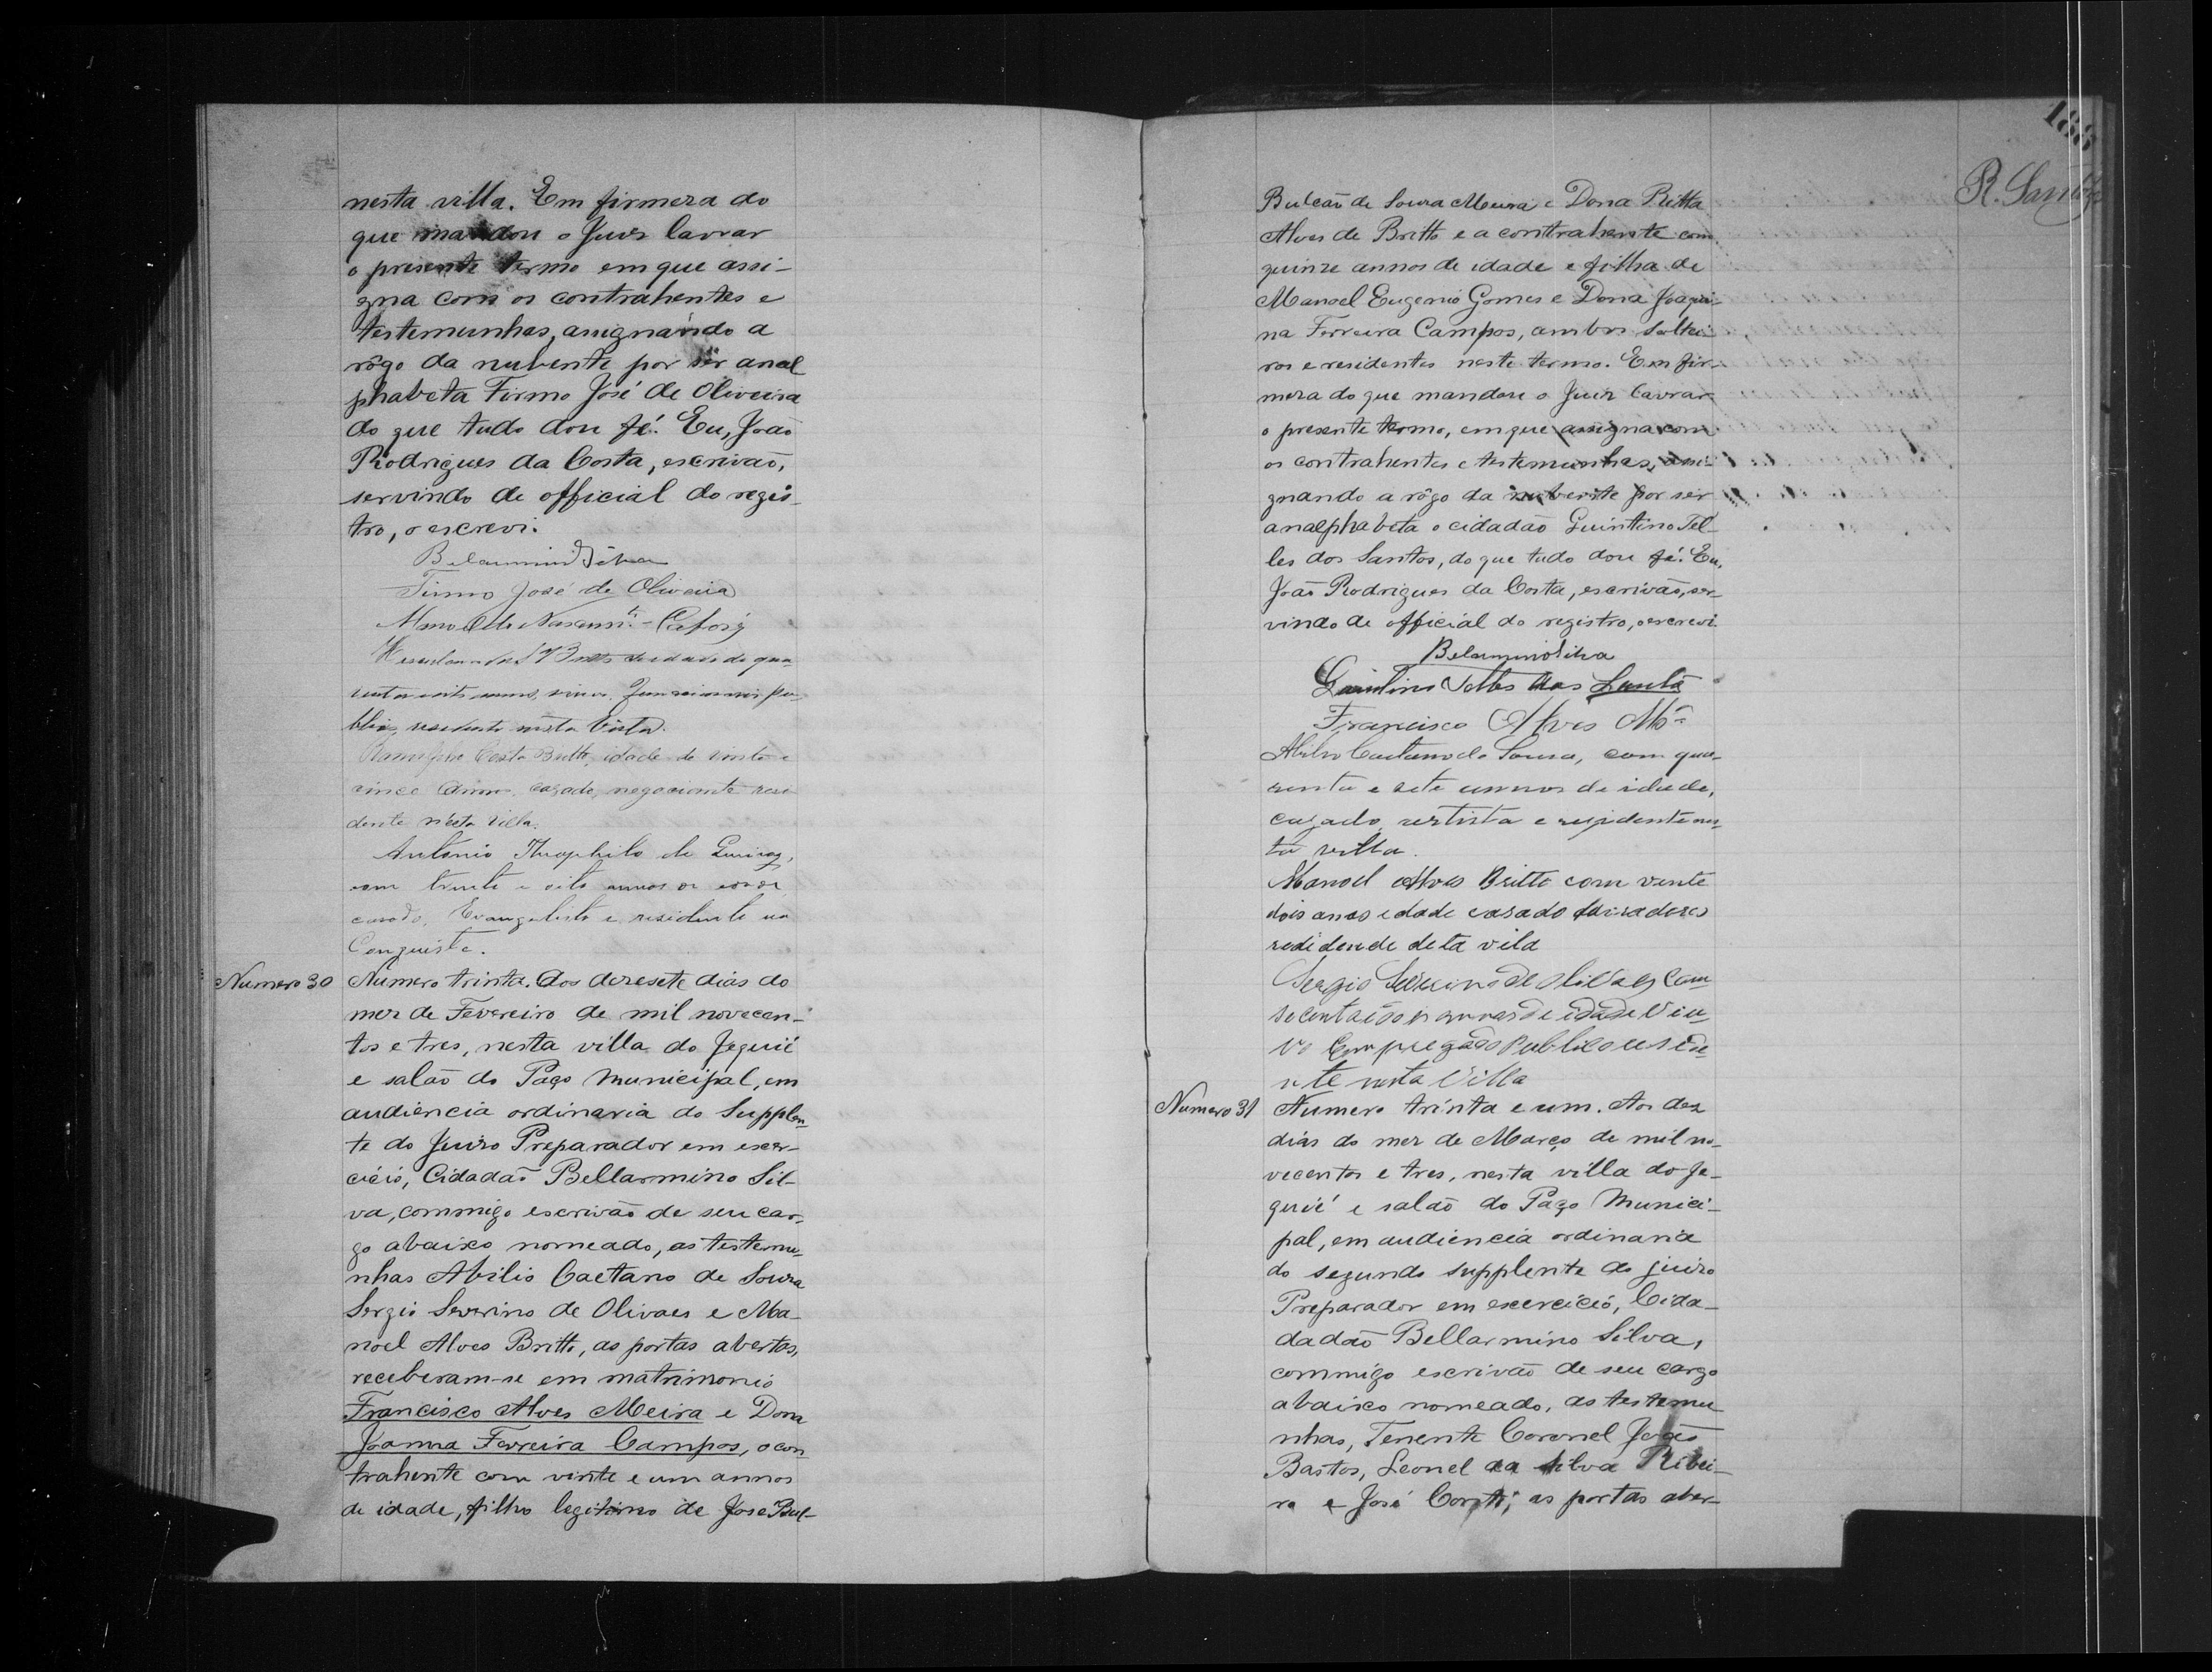 nesta villa. Em firmeza do
que mandou o Juiz lavrar
o presente termo em que assi-
gna com os contrahentes e
testemunhas, assignando a
rôgo da nubente por ser anal
phabeta Firmo José de Oliveira
do que tudo dou fé. Eu, João
Rodrigues da Costa, escrivão,
servindo de official do regis-
tro, o escrevi.
Belarmino Silva
Firmo José de Oliveira
Manoel do Nascimt.
Britto de idade de qua
renta e oito annos, funcionario pu
blico, residente nesta
Costa Britto, idade de vinte e
cinco annos, cazado, negociante resi
dente nesta Villa.
Antonio Theophilo de Queiroz,
com trinta e oito annos de
casado, Evangelista e residente na
Conquista.
Numero 30
Numero trinta. Aos dezesete dias do
mez de Fevereiro de mil novecen-
tos e tres, nesta villa do Jequié
e salão do Paço Municipal, em
audiencia ordinaria do Supplen-
te do Juizo Preparador em exer-
cicio, Cidadão Bellarmino Sil-
va, commigo escrivão de seu car-
go abaixo nomeado, as testemu-
nhas Abilio Caetano de Souza
Sergio Severino de Olivaes e Ma-
noel Alves Britto, as portas abertas,
receberam-se em matrimonio
Francisco Alves Meira e Dona
Joanna Ferreira Campos, o con
trahente com vinte e um annos
de idade, filho legitimo de José Bul-
188
R. Santos
Bulcão de Souza Meira e Dona Ritta
Alves de Britto e a contrahente com
quinze annos de idade e filha de
Manoel Eugenio Gomes e Dona Joaqui-
na Ferreira Campos, ambos soltei-
ros e residentes neste termo. Em fir-
meza do que mandou o Juiz lavrar
o presente termo, em que assigna com
os contrahentes e testemunhas, assi-
gnando a rôgo da nubente por ser
analphabeta o cidadão Quintino Tel-
les dos Santos, do que tudo dou fé. Eu,
João Rodrigues da Costa, escrivão, ser-
vindo de official do registro, o escrevi
Belarmino Silva
Quintino Telles dos Santos
Francisco Alves Mra
Abilio Caetano de Souza, com qua-
renta e sete annos de idade,
cazado artista e rezidente nes-
ta villa.
Manoel Alves Britto com vente
dois anos edade casado lavradores
redidende deta vila
Sergio Severino de Olivaes Com
secenta e annos de idade Viu
vo Empregado Publico resede
nte nesta Villa
Numero 31
Numero trinta e um. Aos dez
dias do mez de Março de mil no-
vecentos e tres, nesta villa do Je-
quié e salão do Paço Munici-
pal, em audiencia ordinaria
do segundo supplente do juizo
Preparador em exercicio, Cida-
dadão Bellarmino Silva,
commigo escrivão de seu cargo
abaixo nomeado, as testemu
nhas, Tenente Coronel
Bastos, Leonel da Silva Ribei-
ro e José as portas aber-